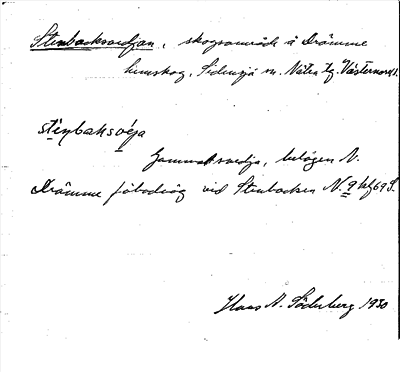 Stenbacksvedjan, skogsområde å Drömme
hemskog, Sidensjö sn. Nätra tg. Västernorrl.
stenbaksvéja
Gammal svedja, belägen N.
Drömme fäbodväg vid Stenbacken N. 9 hlf 69 S.
Hans A. Söderberg 1930